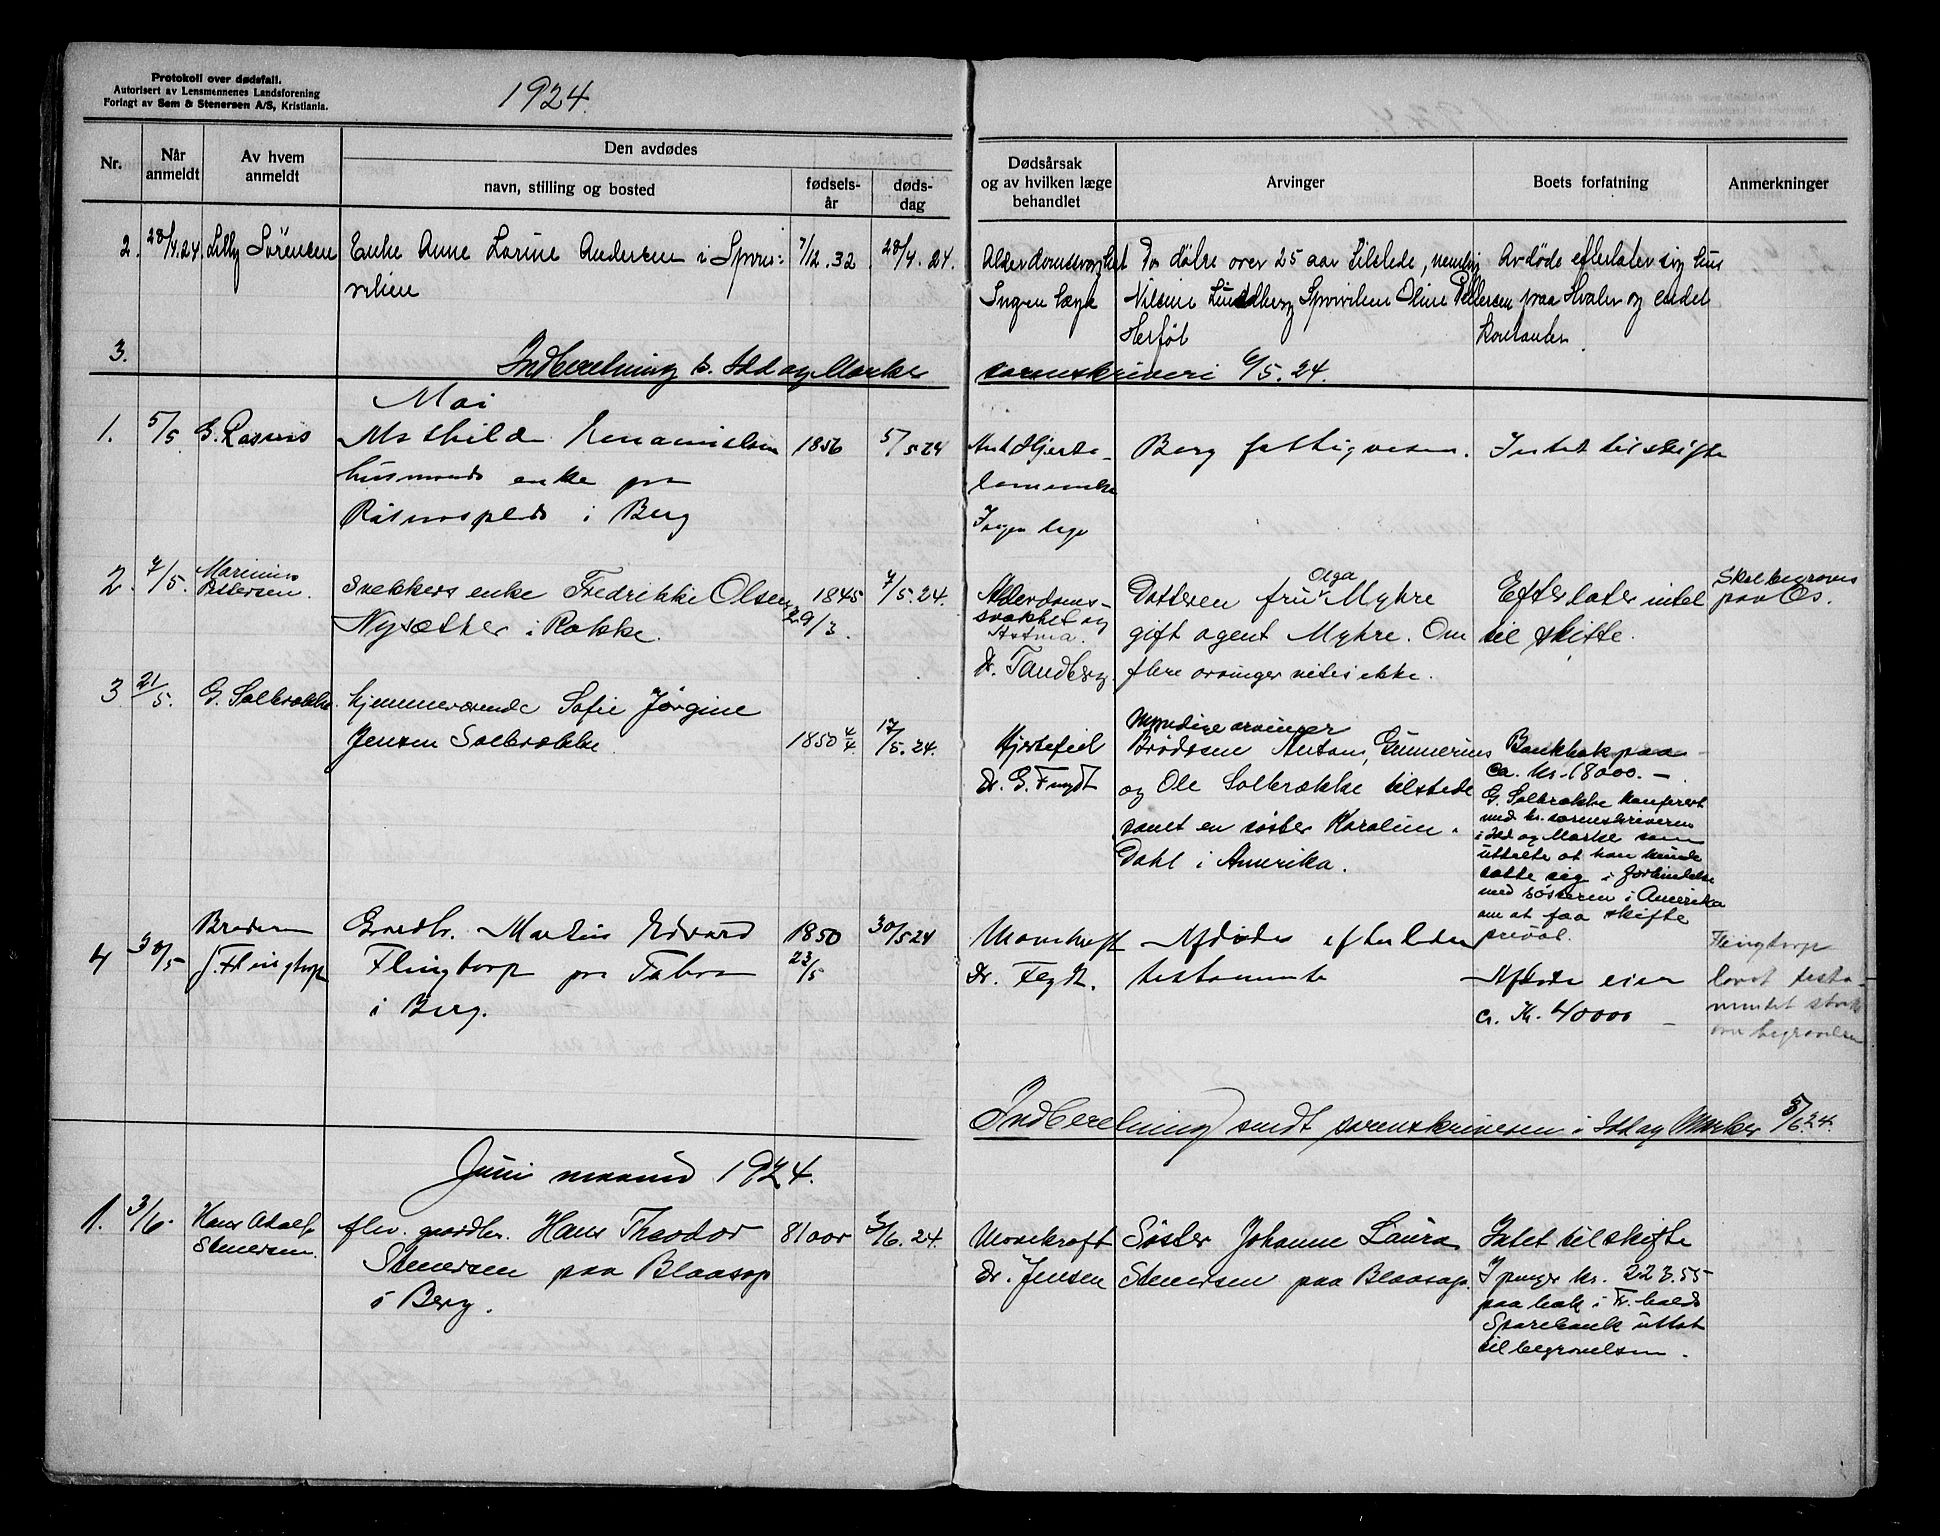 Protokoll over dødsfall.
Autorisert av Lensmennenes Landsforening
Forlagt av Sem & Stenersen A/S, Kristiania.
1924.
Nr.
Når
anmeldt
Av hvem
anmeldt
Den avdødes
navn, stilling og bosted
fødsels-
år
døds-
dag
Dødsårsak
og av hvilken læge
behandlet
Arvinger
Boets forfatning
Anmerkninger
2. 28/4.24. Lilly Sörensen Enke Anne Lorine Andersen i Sponvikien 7/12.32 28/4.24.
Alderdomssvakhet
Ingen læge
To døtre over 25 aar tilstede, nemlig
Nilsine Lundberg Sponviken Oline Pettersen
Herføl
Avdøde efterlater sig hus
paa Hvaler og endel
kontanter.
3.
Indberetning t. Idd og Marker sorenskriveri 6/5.24.
Mai
1. 5/5 G. Rasmus Mathilde
husmands enke paa
i Berg
1856 5/5 24
Ant. Hjerte-
lammelse
Ingen lege
Berg fattigvesen.
Intet til skifte
2. 7/5. Marinius
Pettersen.
Snekkers enke Fredrikke Olsen
Nysæther i Rokke.
1845
29/3.
7/5.24.
Alderdoms-
svakhet og
Astma.
Dr. Tandberg
Datteren fru Olga Myhre
gift agent Myhre. Om
flere arvinger vites ikke.
Efterlater intet
til skifte.
Skal begraves
paa Os.
3 21/5. G. Solbrække. hjemmeværende Sofie Jørgine
Jensen Solbrække.
1850 4/4 17/5.24.
Hjertefeil
Dr. G. Feygt
Myndige arvinger
Brødrene Anton, Gunnerius
og Ole Solbrække tilstede
samt en søster Karoline
Dahl i Amerika.
Bankbok paa
ca. kr. 18000.-
G. Solbrække konferert
med hr. sorenskriveren
i Idd og Marker som
uttalte at han kunde
sætte sig i forbindelse
med søsteren i Amerika
om at faa skifte
privat.
4 30/5 Broderen
J. Flingtorp
Gaardbr. Martin Edvard
Flingtorp paa
i Berg.
1850
23/5
30/5 24
Marekraft
Dr. Feygt.
Afdøde efterlader
testamente
Afdøde eier
ca. Kr. 40000 -
Flingtorp
lovet testa-
mentet straks
over begravelsen
Indberetning sendt sorenskriveren i Idd og Marker 5/6.24.
Juni maaned 1924.
1. 3/6. Hans Adolf
Stenersen.
flv. gaardbr. Hans Theodor
Stenersen paa Blaasop
i Berg.
81 aar 3/6.24.
Marekraft
Dr. Jensen
Søster Johanne Laura
Stenersen paa Blaasop.
Intet til skifte
I penger kr. 223.55
paa bok i Fr.halds
Sparebank uttat
til begravelsen.